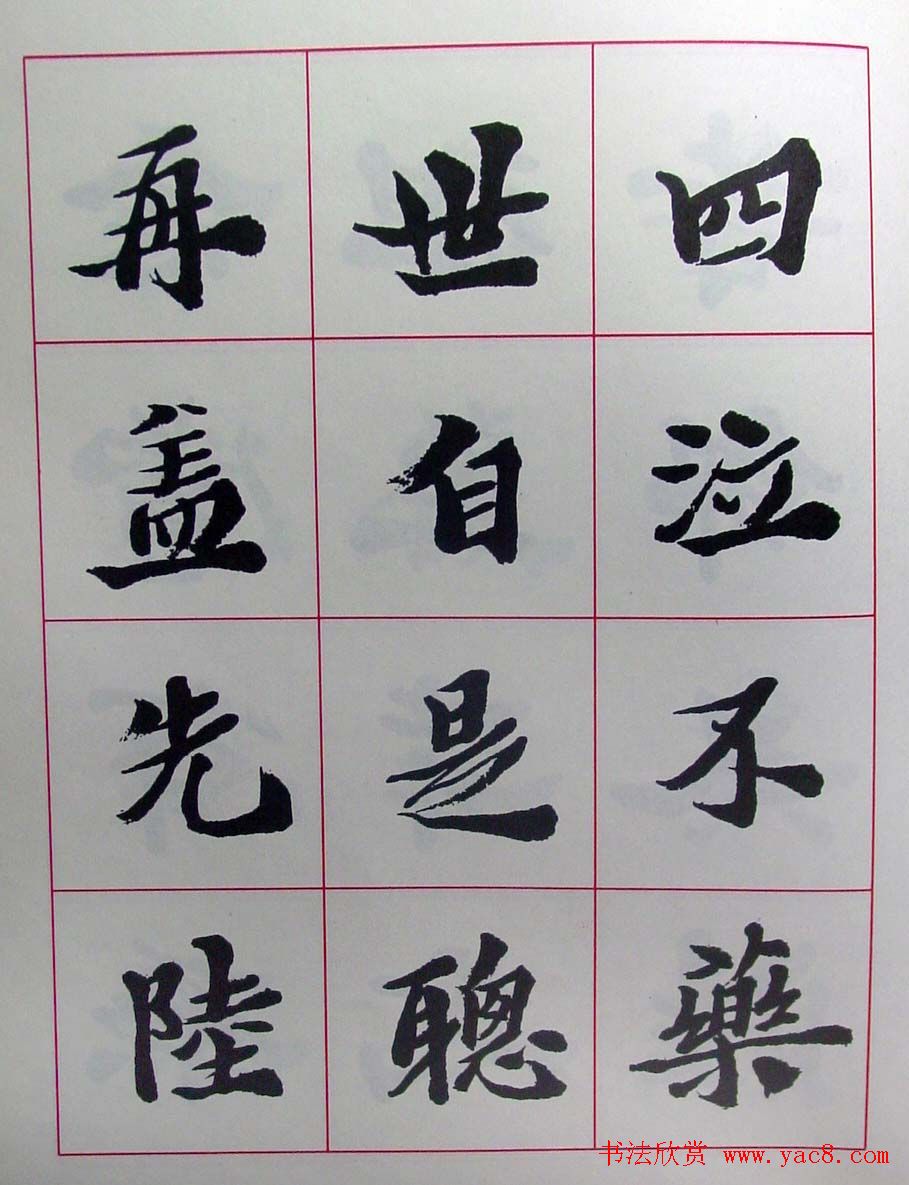 四泣不藥
世自是聰
再盖先陸
书法欣赏 www.yac8.com